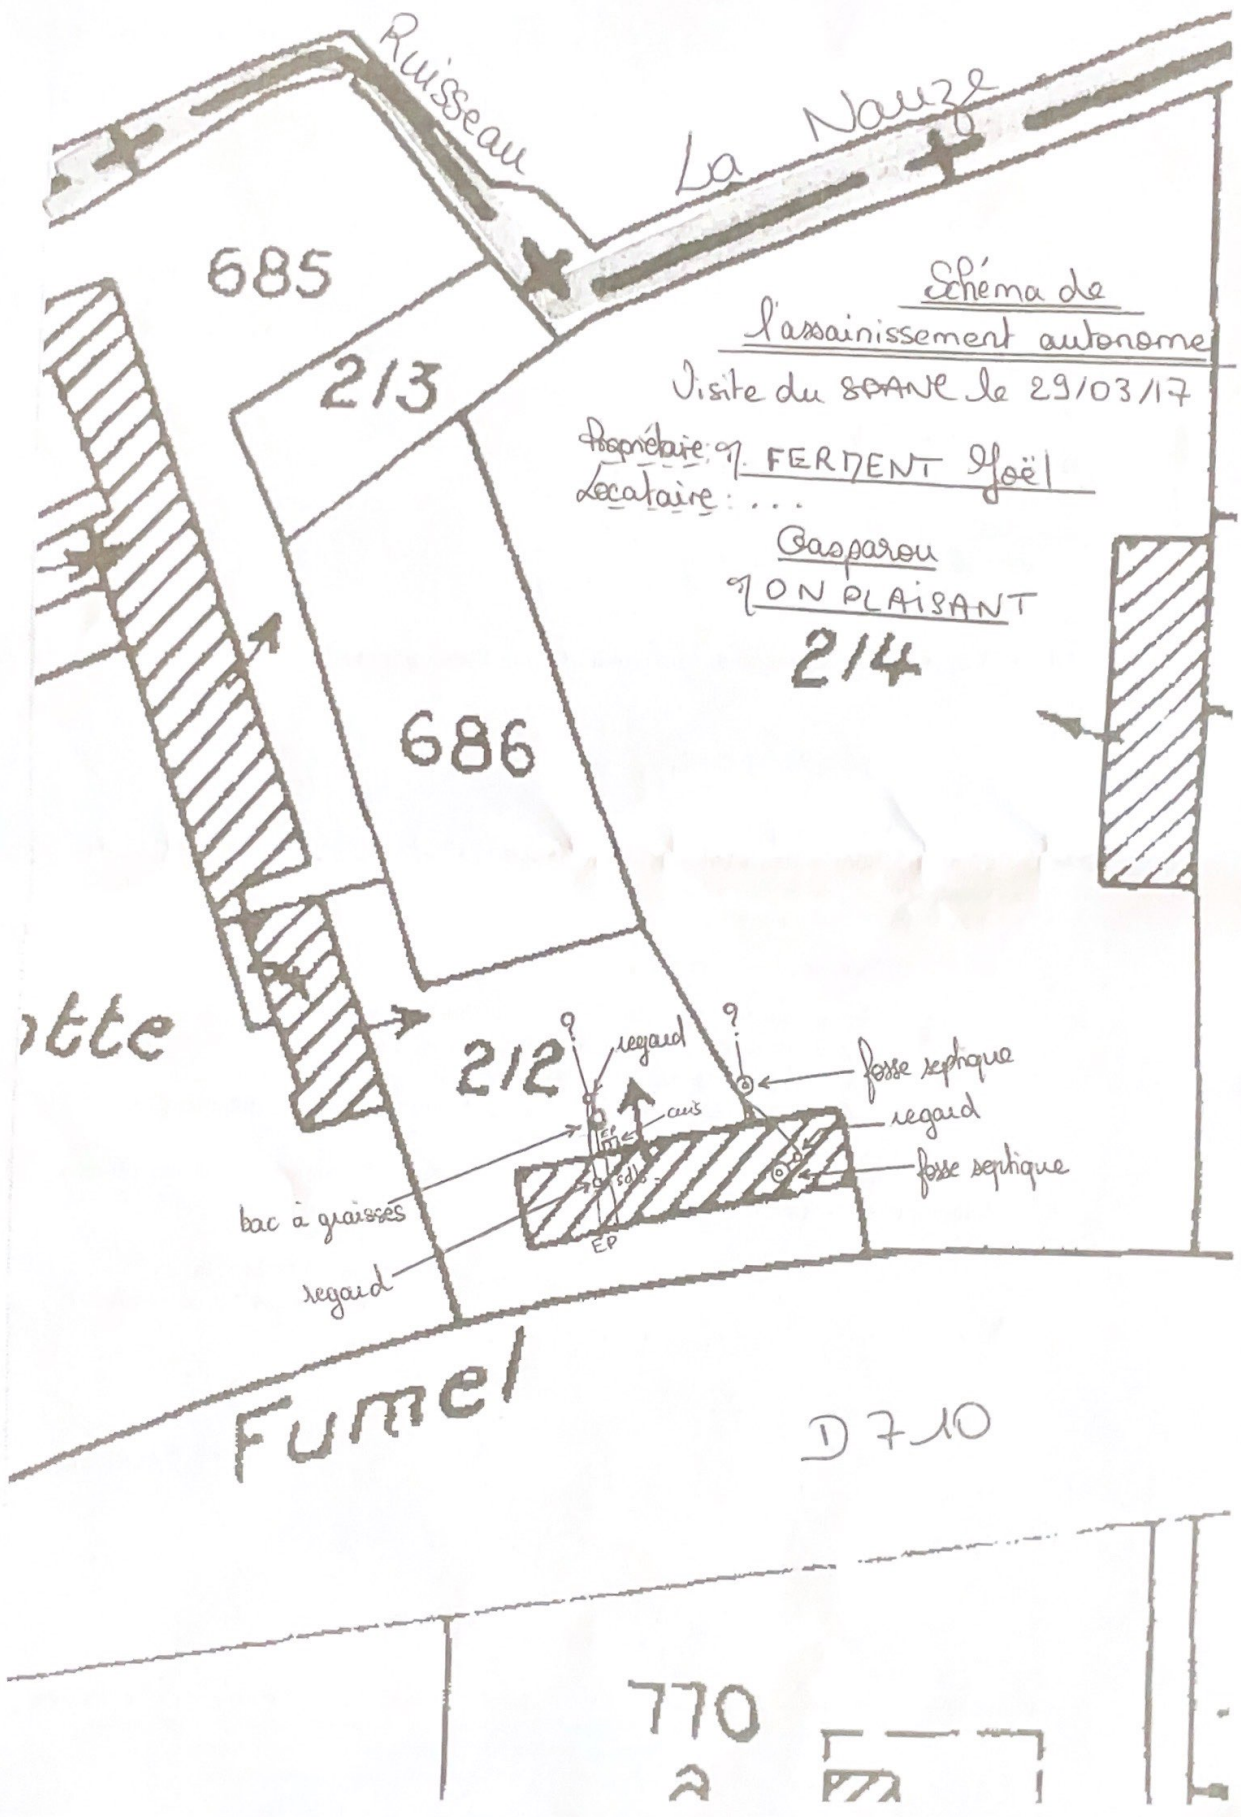 Ruisseau
La Nauze
685
213
Schéma de
l'assainissement autonome
Visite du SPANC le 29/03/17
Propriétaire: M. FERMENT Joël
Locataire: ...
Gasparou
MONPLAISANT
214
686
otte
212
?
regard
?
fosse septique
regard
fosse septique
EP
cuis
sdb
bac à graisses
EP
regard
Fumel
D 710
770